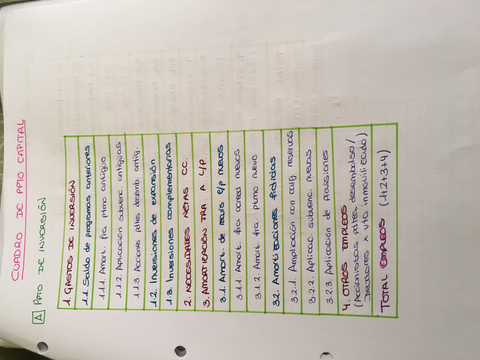 CUADRO DE PPTO CAPITAL
A PPTO DE INVERSIÓN
1. GASTOS DE INVERSIÓN
1.1. Saldo de programas anteriores
1.1.1. Amort. fra ptmo antiguo
1.1.2. Aplicación subvenc. antiguas
1.1.3. Acciones ptes desemb. antig.
1.2. Inversiones de expansión
1.3. Inversiones complementarias
2. NECESIDADES NETAS CC.
3. AMORTIZACIÓN FRA A L/P.
3.1. Amort. de recus l/p nuevos
3.1.1. Amort. fra corred nuevos
3.1.2. Amort. fra ptmo nuevo
3.2. Amortizaciones ficticias
3.2.1. Ampliación con carg. reservas
3.2.2. Aplicac. subvenc. nuevas
3.2.3. Aplicación de provisiones
4. OTROS EMPLEOS
(Accionistas ptes. desembolso/
x vta inmovilizado)
TOTAL EMPLEOS (1+2+3+4)